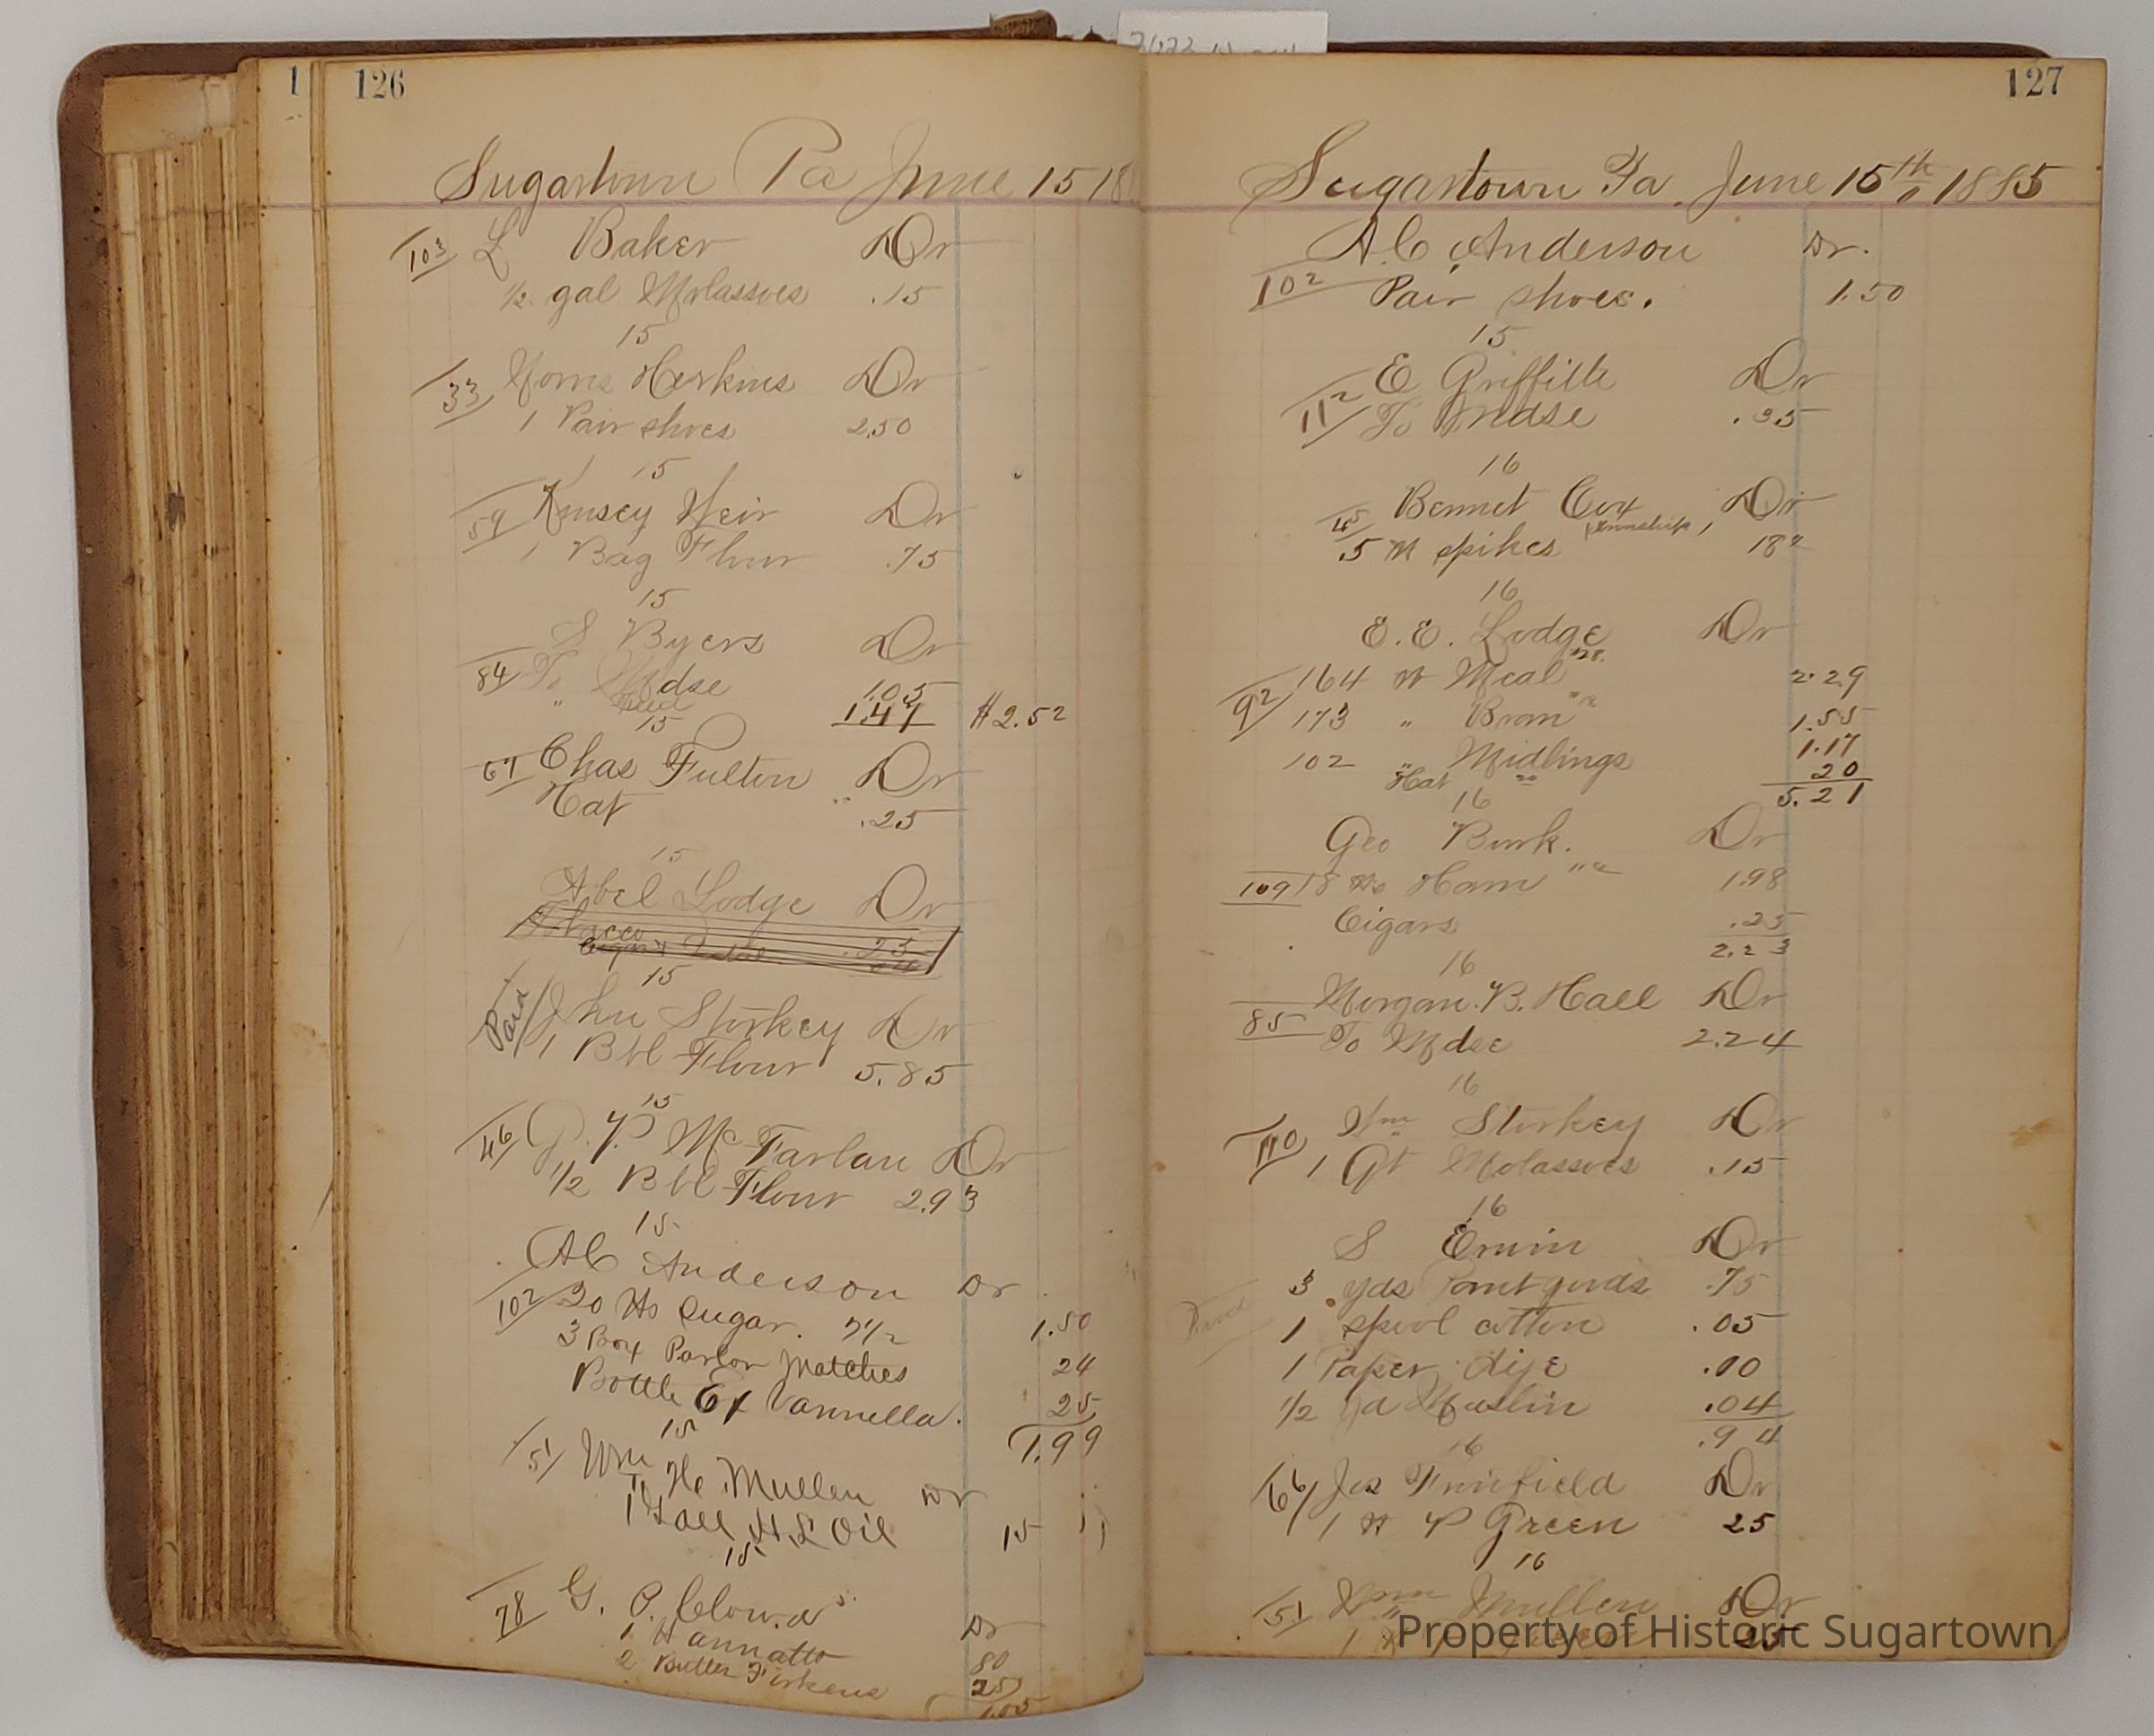 1
126
Sugartown Pa June 15 18
103 L Baker Dr
1/2 gal Molassoes .15
15
33 Hoskins Dr
1 Pair shoes 2.50
15
59 Kinsey Weir Dr
1 Bag Flour .75
15
S Byers Dr
84 To Mdse 1.05
" 1.47 $2.52
15
67 Chas Fulton Dr
Hat .25
15
Abel Lodge Dr
Tobacco .25
15
Paid John Storkey Dr
1 Bbl Flour 5.85
15
46 G. P. McFarlan Dr
1/2 Bbl Flour 2.93
15
AC Anderson Dr
102 20 lbs Sugar. 7 1/2 1.50
3 Box Parlor Matches 24
Bottle Ex Vannella. 25
1.99
15
51 Wm H Mullen Dr
1 Gall H.L Oil 15
15
78 G. P. Dr
1 # Annatto 80
2 Butter Firkens 25
1.05
127
Sugartown Pa. June 15th, 1885
A.C. Anderson Dr.
102 Pair shoes. 1.50
15
E Griffith Dr
112 To Mdse .35
16
Bennet Cox Dr
45 (Township)
5 # spikes 18
16
E.E. Lodge Dr
164 # Meal 2.29
92 173 " Bran 1.55
102 " Midlings 1.17
Hat 20
16 5.21
Geo Burk. Dr
109 18 #s Ham 1.98
Cigars .25
2.23
16
Morgan B. Hall Dr
85 To Mdse 2.24
16
Wm Storkey Dr
110 1 Qt Molassoes .15
16
S Erwin Dr
3 yds goods .75
1 spool cotton .05
1 Paper dye .10
1/2 yd Muslin .04
.94
16
66 Jos Fairfield Dr
1 # P Green 25
16
51 Wm Mullen Dr
1 # 25
Property of Historic Sugartown